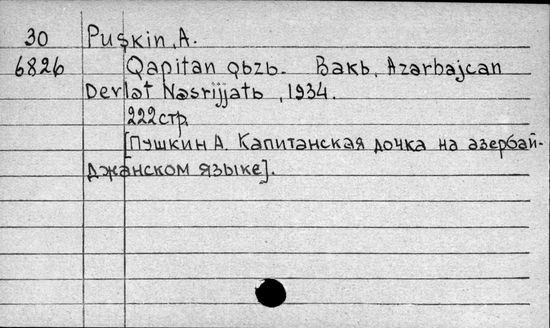 30 Puşkin, A.
6826 Qapitan qьzь. Bakь, Azərbajcan
Devlət Nəsrijjatь, 1934.
222 стр.
[Пушкин А. Капитанская дочка на азербай-
джанском языке].